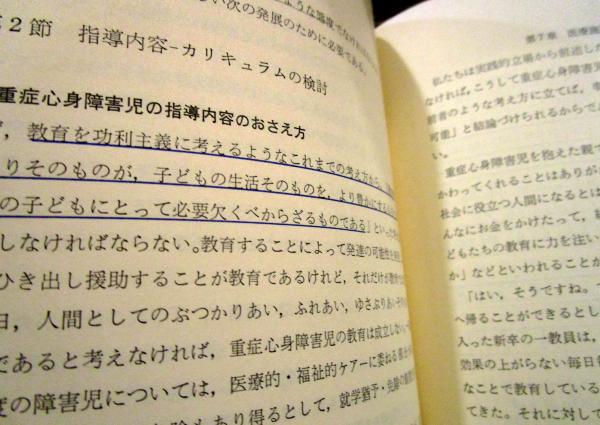 ような論度でなければな
しい次の発展のために必要である。
第2節 指導内容-カリキュラムの検討
重症心身障害児の指導内容のおさえ方
，教育を功利主義に考えるようなこれまでの考え方から，
りそのものが，子どもの生活そのものを，より豊かにする
の子どもにとって必要欠くべからざるものである」といった
しなければならない。教育することによって発達の可能性を
ひき出し援助することが教育であるけれど，それだけが教育
日，人間としてのぶつかりあい，ふれあい，ゆさぶりあい
であると考えなければ，重症心身障害児の教育は成立しない。
度の障害児については，医療的・福祉的ケアーに委ねる
もあり得るとして，就学猶予・免除の
第7章 医療施
私たちは実践的立場から前述した
なければ。こうして重症心身障害児
前者のような考え方に立てば，
可能」と結論づけられるからで
い。
重症心身障害児を抱えた親で
かわってくれることはありが
社会に役立つ人間になるとは
んなにお金をかけたって，
どもたちの教育に力を注い
か」などといわれることが
「はい，そうですね。
へ帰ることができるとし
入った新卒の一教員は，
効果の上がらない毎日
なことで教育している
てきた。それに対して